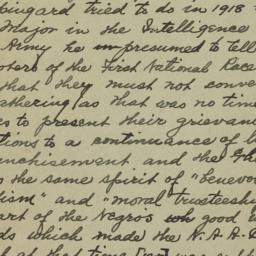 pingard tried to do in 1918
Major in the Intelligence
Army he presumed to tell
oters of the First National Race
that they must not conve
athering as that was no time
es to present their grievanc
tions to a continuance of l
nchisement and the Gh
o the same spirit of "benevo
lism" and "moral trusteeshi
art of the Negro's good w
ds which made the N.A.A.
at that time [ ] was